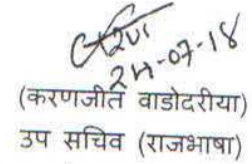 24-07-18
(करणजीत वाडोदरीया)
उप सचिव (राजभाषा)